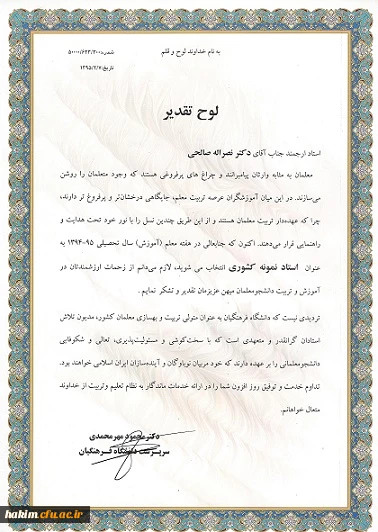 به نام خداوند لوح و قلم
شماره:۵۰۰۰۰/۶۴۳/۳۰۰
تاریخ:۱۳۹۵/۲/۷
لوح تقدیر
استاد ارجمند جناب آقای دکتر نصراله صالحی
معلمان به مثابه وارثان پیامبرانند و چراغ های پرفروغی هستند که وجود متعلمان را روشن
می‌سازند. در این میان آموزشگران عرصه تربیت معلم، جایگاهی درخشان‌تر و پرفروغ تر دارند،
چرا که عهده‌دار تربیت معلمان هستند و از این طریق چندین نسل را با نور خود تحت هدایت و
راهنمایی قرار می‌دهند. اکنون که جنابعالی در هفته معلم (آموزش) سال تحصیلی ۹۵-۱۳۹۴ به
عنوان استاد نمونه کشوری انتخاب می شوید، لازم می‌دانم از زحمات ارزشمندتان در
آموزش و تربیت دانشجومعلمان میهن عزیزمان تقدیر و تشکر نمایم .
تردیدی نیست که دانشگاه فرهنگیان به عنوان متولی تربیت و بهسازی معلمان کشور، مدیون تلاش
استادان گرانقدر و متعهدی است که با سخت‌کوشی و مسئولیت‌پذیری، تعالی و شکوفایی
دانشجومعلمانی را بر عهده دارند که خود مربیان نوباوگان و آینده‌سازان ایران اسلامی خواهند بود.
تداوم خدمت و توفیق روز افزون شما را در ارائه خدمات ماندگار به نظام تعلیم و تربیت از خداوند
متعال خواهانم.
دکتر محمود مهرمحمدی
سرپرست دانشگاه فرهنگیان
hakim.cfu.ac.ir